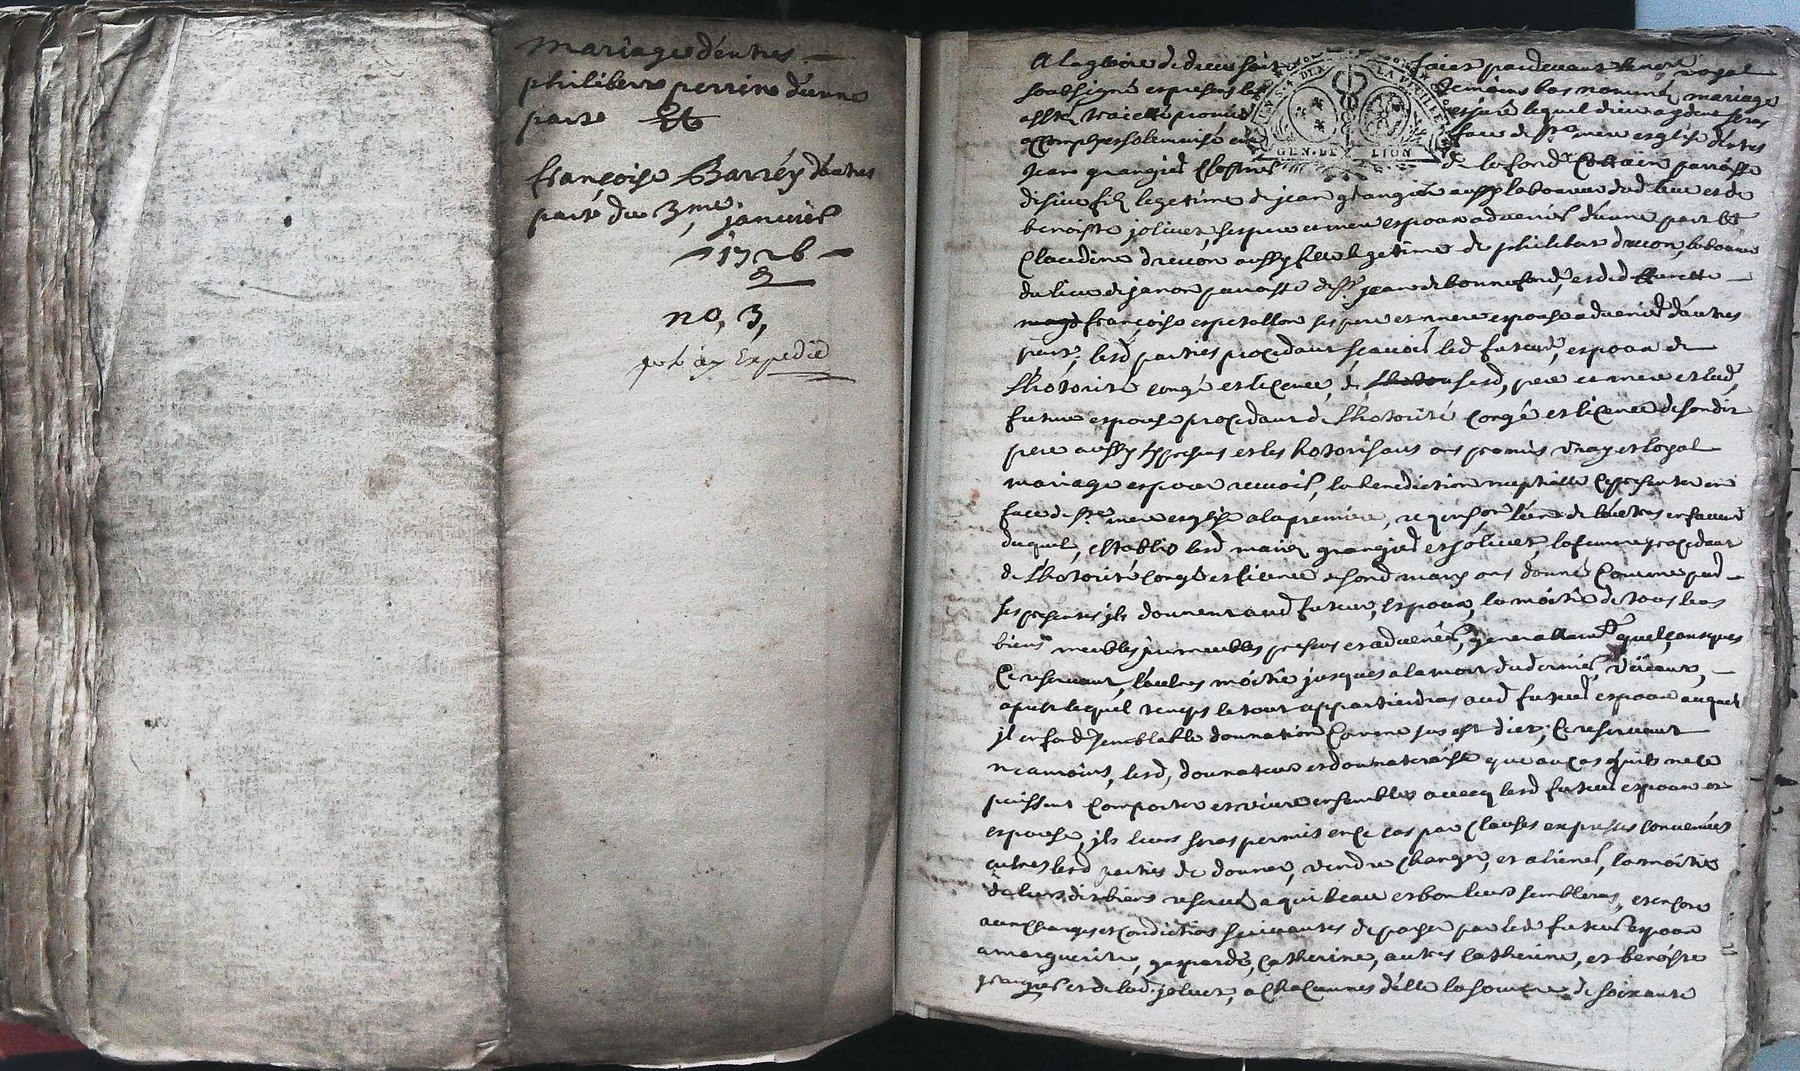 Mariage d'entres
philibert perrin d'une
parte Et
françoise Barréy d'autres
parte du 3me janvier
1726
no, 3,
Expedié
A la gloire de dieu soit faict pardevant le no.re royal
soubsigné et presens les temoins bas nommé, mariage
a esté traicté promis et juré lequel dieu aydant seras
accomply et solemnisé en face de s.te mere esglise d'entres
Jean grangier de la fond parroisse
filz legetime de jean grangier aussy laboureur dud lieu et de
benoiste jolivet, ses pere et mere espoux advenir d'une part Et
Claudine drevon aussy fille legetime de philibert drevon, laboureur
du lieu de janon parroisse de s.t jean de bonnefond, et de d
françoise espetallon ses pere et mere espouse advenir d'autres
part, lesd parties procedant sçavoir led futeur, espoux de
l'hotorité congé et licence, de sesd, pere et mere et lad,
future espouse procedant de l'hotorité congé et licence de sondit
pere aussy present et les hotorisant ont promis vray et loyal
mariage et pour recevoir, la benediction nuptialle ce presenter en
face de s.te mere esglise a la premiere, requision l'un de l'autres en faveur
duquel, establis lesd mariez grangier et jolivet, la femme procedant
de l'hotorité congé et licence de sond mary ont donné comme par
ses presentes ils donnent aud futeur, espoux, la moitié de tous leurs
biens meubles immeubles presens et advenir, generallement quelconques
Ce reservant, l'autres moitié jusques a la mort du dernier, vivant,
apres lequel temps le tout appartiendras aud futeur espoux auquel
il en font semblable donnation comme sus est dict, Ce reservant
neamoins, lesd, donnateur et donnateraise que au cas qu'ils ne ce
puissent comporter et vivre ensembles avecq lesd futeur espoux et
espouse, ils leurs seras permis en ce cas par clauses expresses convenues
entres lesd parties de donner, vendre changer, et aliener, la moitié
de leurs dit biens reservé a qui beau et bon leurs sembleras, et encore
aux charges et condictions suivantes de payer par led futeur espoux
a marguerite, gasparde, catherine, autres catherine, et benoiste
grangier et de lad. jolivet, a chascunnes d'elle la somme de soixante
GEN. DE LION